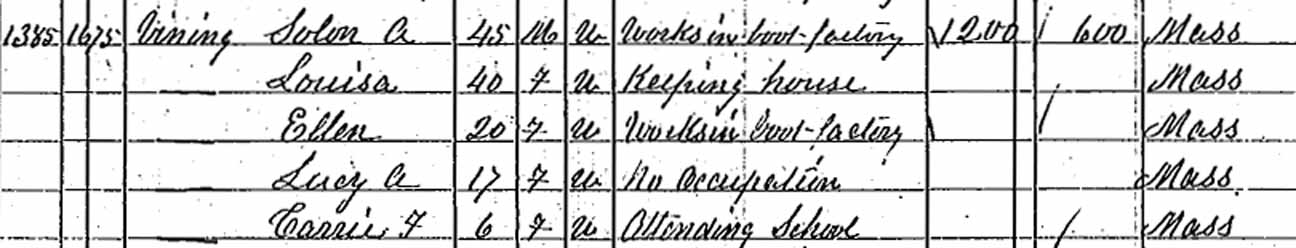 1385 1675 Vining Solon A 45 M W Works in boot-factory 1200 600 Mass
—— Louisa 40 F W Keeping house Mass
—— Ellen 20 F W Works in boot-factory Mass
—— Lucy A 17 F W No occupation Mass
—— Carrie F 6 F W Attending School Mass